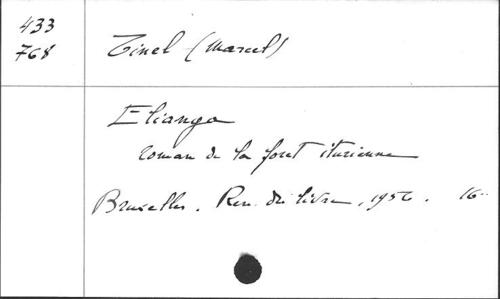 433
768
Tinel (Marcel)
Elianga
roman de la foret iturienne
Bruxelles. Ren. du livre, 1956. 16